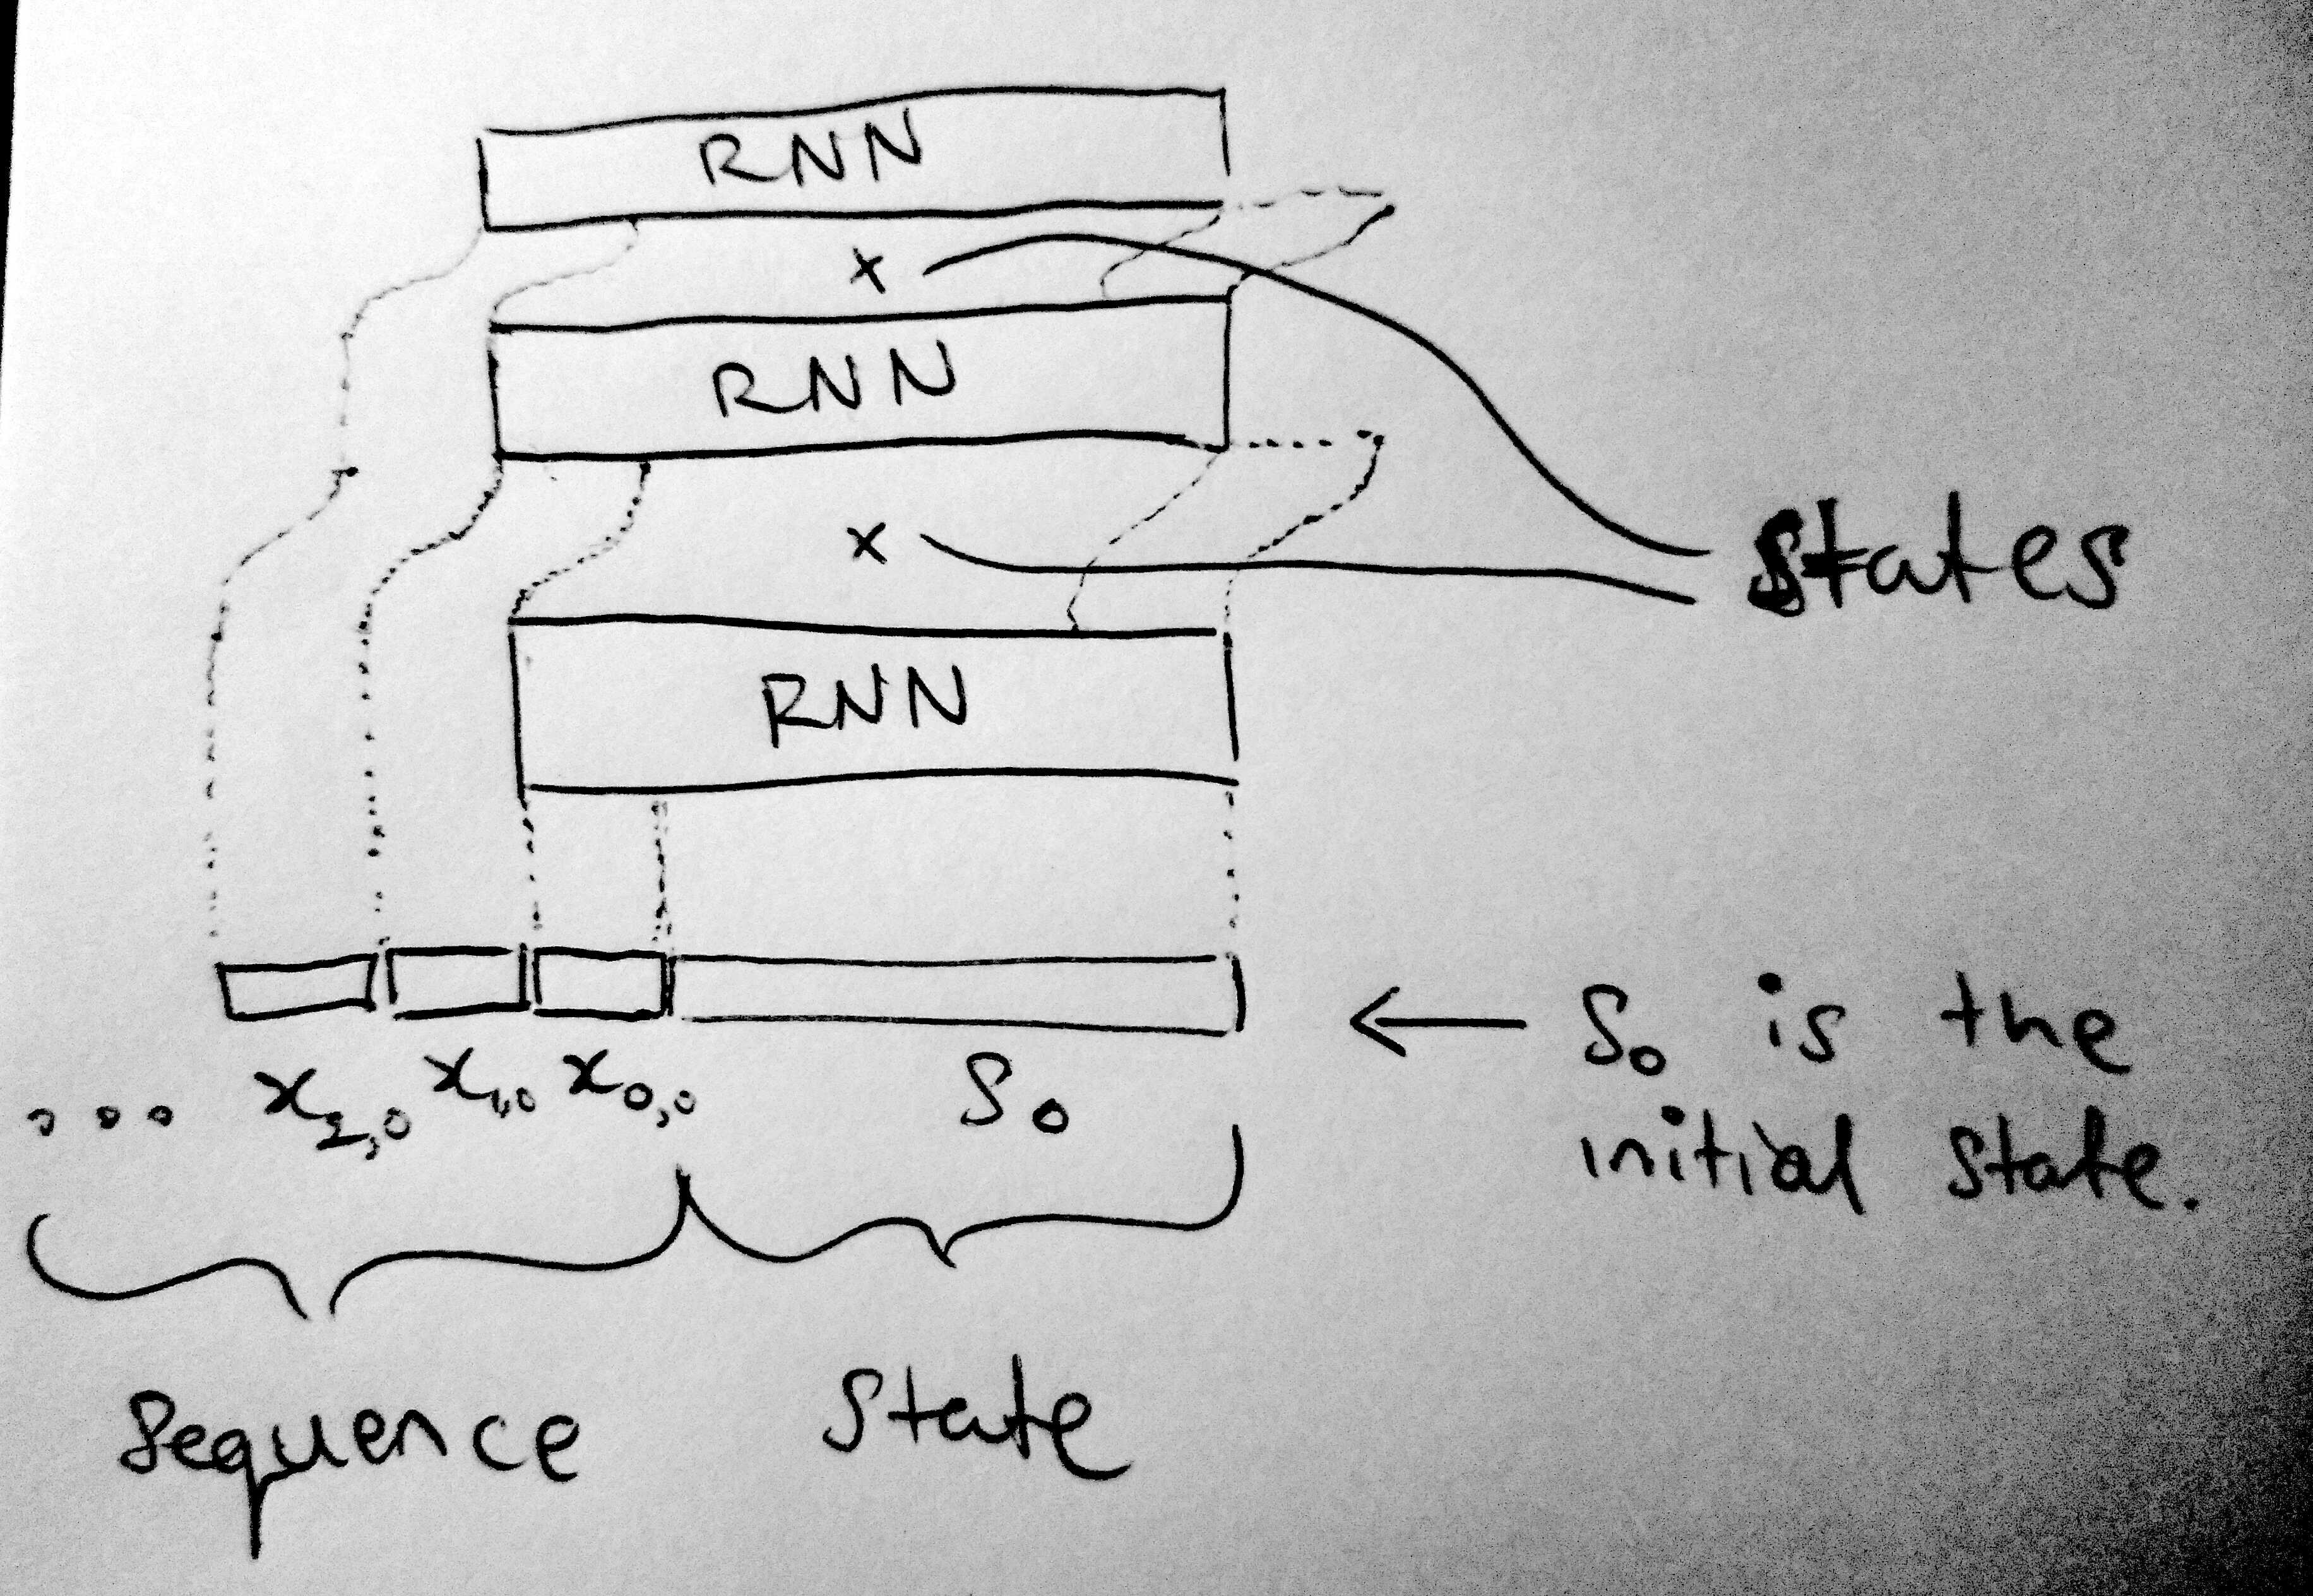 RNN
x
RNN
x
States
RNN
... x2,0 x1,0 x0,0 S0
S0 is the
initial state.
Sequence State